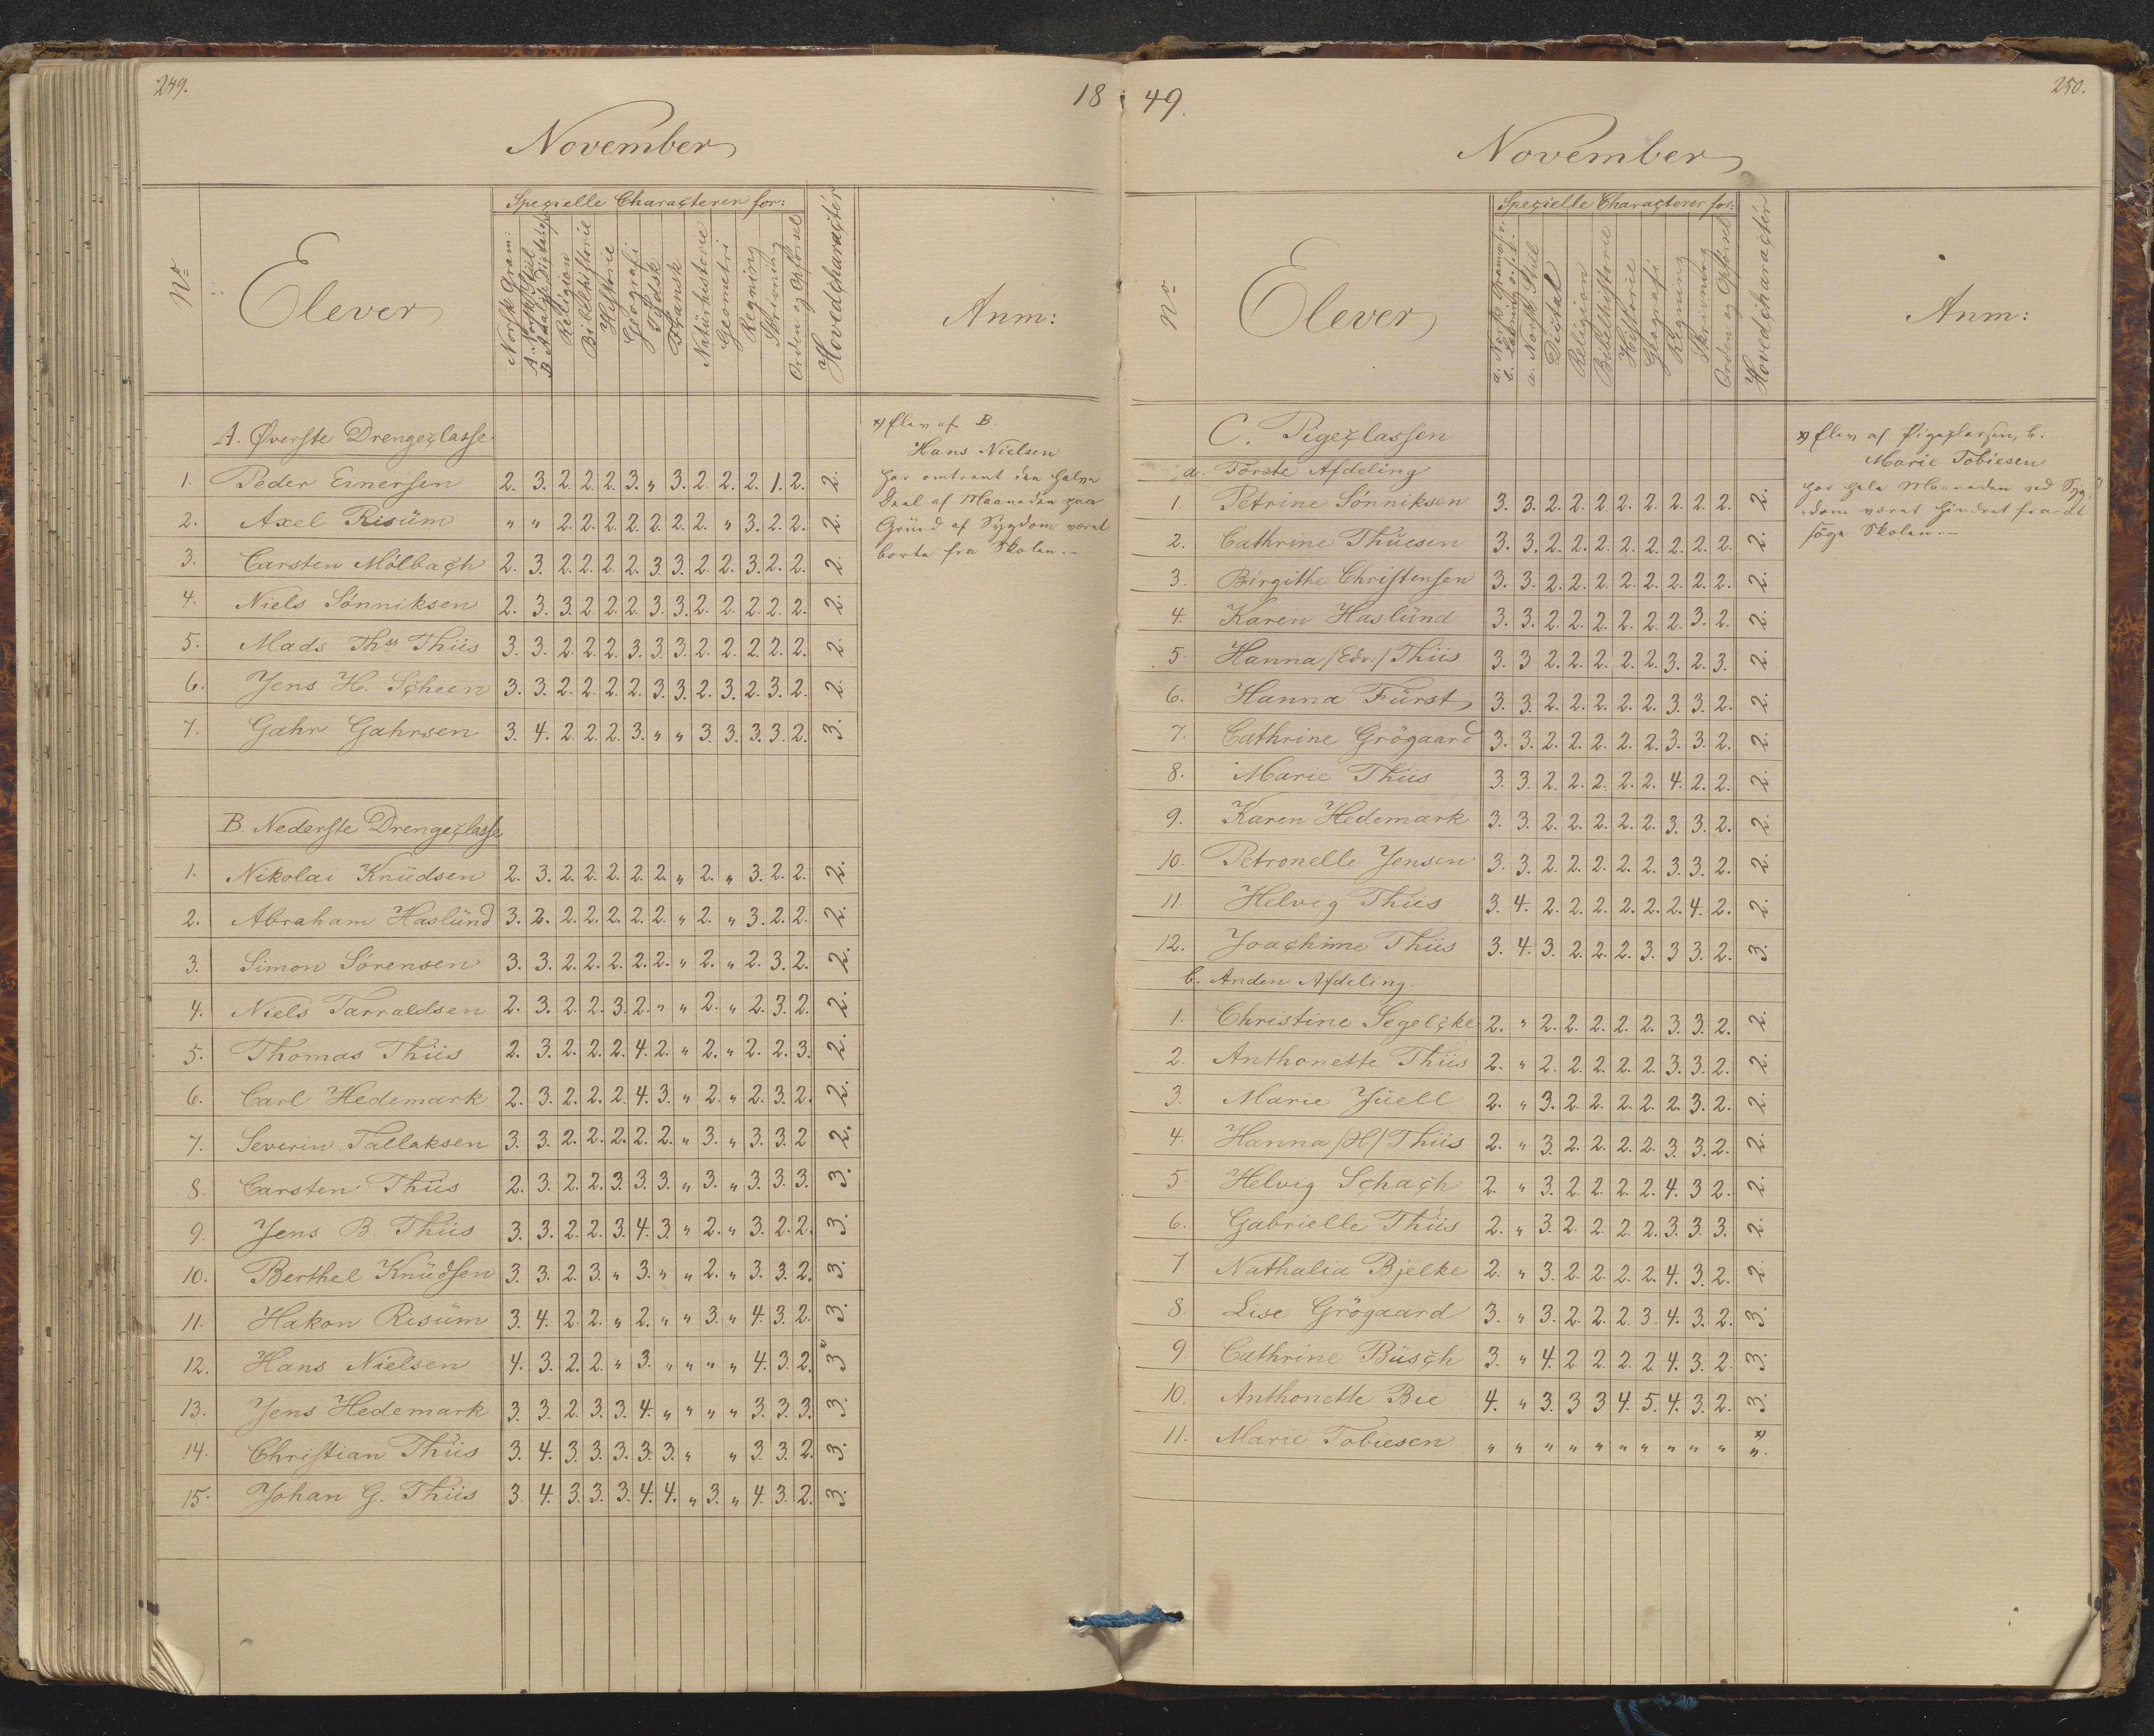 249.
18
November
Nº
Elever
Specielle Characterer for:
Norsk Gram:
A. Norsk Stiil
B. Analyse Dictat
Religion
Bibelhistorie
Historie
Geografi
Tydsk
Fransk
Natürhistorie
Geometri
Regning
Skrivning
Orden og Opförsel
Hovedcharactér
Anm:
A. Øverste Drengeclasse
1. Peder Einersen 2. 3. 2. 2. 2. 3. " 3. 2. 2. 2. 1. 2. 2.
2. Axel Risüm " " 2. 2. 2. 2. 2. 2. 2. " 3. 2. 2. 2.
3. Carsten Mölbach 2. 3. 2. 2. 2. 2. 3. 3. 2. 2. 3. 2. 2. 2.
4. Niels Sönniksen 2. 3. 3. 2. 2. 2. 3. 3. 2. 2. 2. 2. 2. 2.
5. Mads Thss Thiis 3. 3. 2. 2. 2. 3. 3. 3. 2. 2. 2. 2. 2. 2.
6. Jens H. Scheen 3. 3. 2. 2. 2. 2. 3. 3. 2. 3. 2. 3. 2. 2.
7. Gahr Gahrsen 3. 4. 2. 2. 2. 3. " " 3. 3. 3. 3. 2. 3.
B. Nederste Drengeclasse
1. Nikolai Knüdsen 2. 3. 2. 2. 2. 2. 2. " 2. " 3. 2. 2. 2.
2. Abraham Haslünd 3. 2. 2. 2. 2. 2. 2. " 2. " 3. 2. 2. 2.
3. Simon Sörensen 3. 3. 2. 2. 2. 2. 2. " 2. " 2. 3. 2. 2.
4. Niels Tarraldsen 2. 3. 2. 2. 3. 2. " " 2. " 2. 3. 2. 2.
5. Thomas Thiis 2. 3. 2. 2. 2. 4. 2. " 2. " 2. 2. 3. 2.
6. Carl Hedemark 2. 3. 2. 2. 2. 4. 3. " 2. " 2. 3. 2. 2.
7. Severin Tallaksen 3. 3. 2. 2. 2. 2. 2. " 3. " 3. 3. 2 2.
8. Carsten Thiis 2. 3. 2. 2. 3. 3. 3. " 3. " 3. 3. 3. 3.
9. Jens B. Thiis 3. 3. 2. 2. 3. 4. 3. " 2. " 3. 2. 2. 3.
10. Berthel Knüdsen 3. 3. 2. 3. " 3. " " 2. " 3. 3. 2. 3.
11. Hakon Risüm 3. 4. 2. 2. " 2. " " 3. " 4. 3. 2. 3.
12. Hans Nielsen 4. 3. 2. 2. " 3. " " " " 4. 3. 2. 3 x)
13. Jens Hedemark 3. 3. 2. 3. 3. 4. " " " " 3. 3. 3. 3.
14. Christian Thiis 3. 4. 3. 3. 3. 3. 3. " " 3. 3. 2. 3.
15. Johan G. Thiis 3. 4. 3. 3. 3. 4. 4. " 3. " 4. 3. 2. 3.
x) Elev af B.
Hans Nielsen
har omtrent den halve
Deel af Maaneden paa
Gründ af Sygdom været
borte fra Skolen.-
49.
250.
November
Nº
Elever
Specielle Characterer for:
a. Norsk Gramm:
b. Læsning
a. Norsk Stiil
Dictat
Religion
Bibelhistorie
Historie
Geografi
Regning
Skrivning
Orden og Opförsel
Hovedcharactér
Anm:
C. Pigeclassen
a. Förste Afdeling
1. Petrine Sönniksen 3. 3. 2. 2. 2. 2. 2. 2. 2. 2. 2.
2. Cathrine Thüesen 3. 3. 2. 2. 2. 2. 2. 2. 2. 2. 2.
3. Birgithe Christensen 3. 3. 2. 2. 2. 2. 2. 2. 2. 2. 2.
4. Karen Haslünd 3. 3. 2. 2. 2. 2. 2. 2. 3. 2. 2.
5. Hanna /Edv./ Thiis 3. 3 2. 2. 2. 2. 2. 3. 2. 3. 2.
6. Hanna Fürst 3. 3. 2. 2. 2. 2. 2. 3. 3. 2. 2.
7. Cathrine Grögaard 3. 3. 2. 2. 2. 2. 2. 3. 3. 2. 2.
8. Marie Thiis 3. 3. 2. 2. 2. 2. 2. 4. 2. 2. 2.
9. Karen Hedemark 3. 3. 2. 2. 2. 2. 2. 3. 3. 2. 2.
10. Petronelle Jensen 3. 3. 2. 2. 2. 2. 2. 3. 3. 2. 2.
11. Helvig Thiis 3. 4. 2. 2. 2. 2. 2. 2. 4. 2. 2.
12. Joachime Thiis 3. 4. 3. 2. 2. 2. 3. 3 3. 2. 3.
b. Anden Afdeling.
1. Christine Segelcke 2. " 2. 2. 2. 2. 2. 3. 3. 2. 2.
2. Anthonette Thiis 2. " 2. 2. 2. 2. 2. 3. 3. 2. 2.
3. Marie Jüell 2. " 3. 2. 2. 2. 2. 2. 3. 2. 2.
4. Hanna /H/ Thiis 2. " 3. 2. 2. 2. 2. 3. 3. 2. 2.
5. Helvig Schach 2. " 3. 2. 2. 2. 2. 4. 3 2. 2.
6. Gabrielle Thiis 2. " 3. 2. 2. 2. 2. 3. 3. 3. 2.
7 Nathalia Bjelke 2. " 3. 2. 2. 2. 2. 4. 3. 2. 2.
8. Lise Grögaard 3. " 3. 2. 2. 2. 3. 4. 3. 2. 3.
9 Cathrine Büsch 3. " 4. 2. 2. 2. 2 4. 3. 2. 3.
10. Anthonette Bie 4. " 3. 3 3 4. 5. 4. 3. 2. 3.
11. Marie Tobiesen " " " " " " " " " " ". x)
x) Elev af Pigeclassen, b.
Marie Tobiesen
har hele Maaneden ved Syg-
dom været hindret fra at
söge Skolen.-